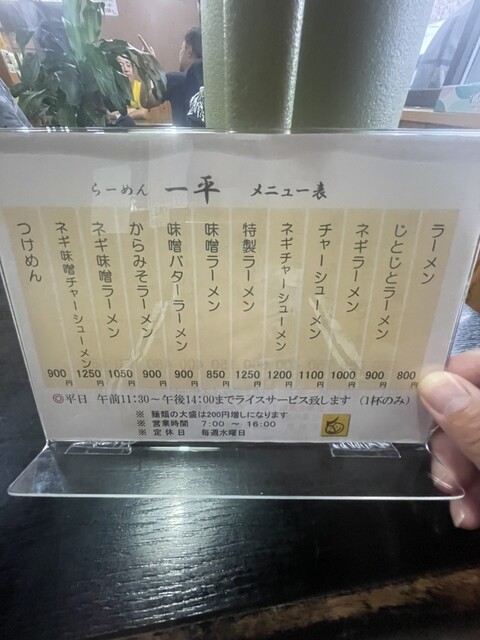 らーめん 一平 メニュー表
ラーメン 800円
じとじとラーメン 900円
ネギラーメン 1000円
チャーシューメン 1100円
ネギチャーシューメン 1200円
特製ラーメン 1250円
味噌ラーメン 850円
味噌バターラーメン 900円
からみそラーメン 900円
ネギ味噌ラーメン 1050円
ネギ味噌チャーシューメン 1250円
つけめん 900円
◎平日 午前11:30～午後14:00までライスサービス致します (1杯のみ)
※ 麺類の大盛は200円増しになります
※ 営業時間 7:00 ～ 16:00
※ 定休日 毎週水曜日